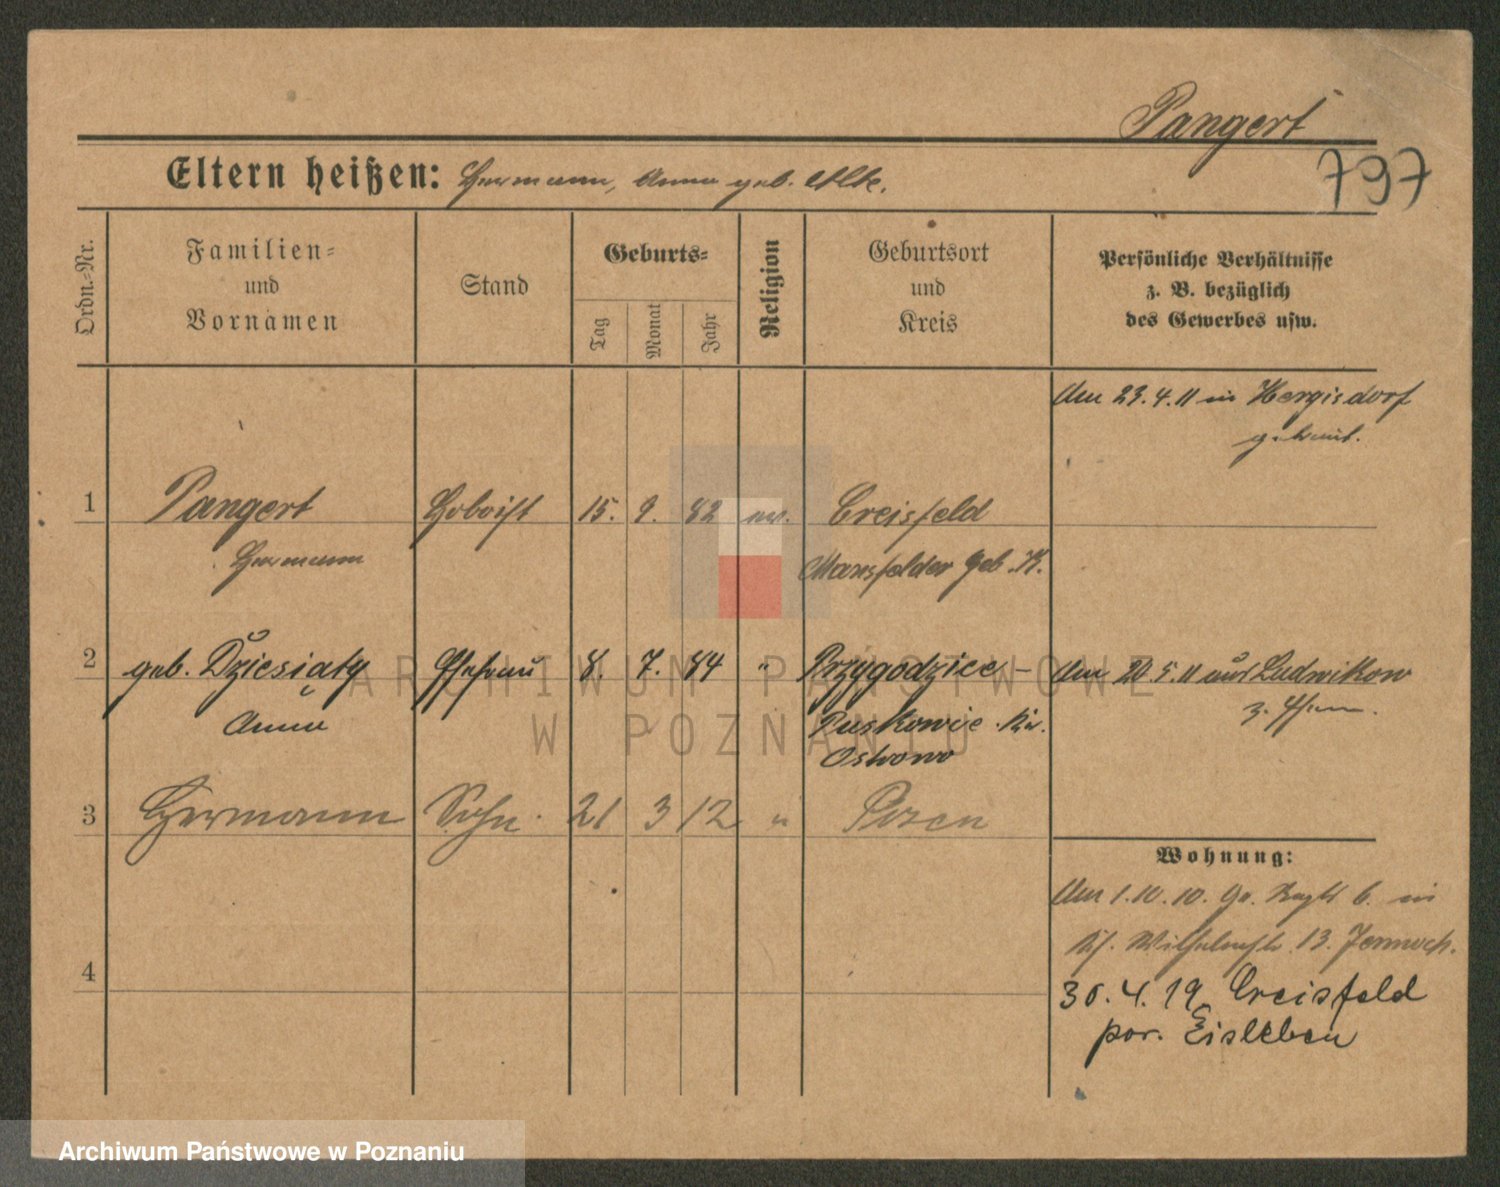 Pangert
797
Eltern heißen: Hermann, Anna geb.
Ordn.-Nr.
Familien-
und
Vornamen
Stand
Geburts-
Tag
Monat
Jahr
Religion
Geburtsort
und
Kreis
Persönliche Verhältnisse
z. B. bezüglich
des Gewerbes usw.
Am 23.4.11 in Hergisdorf
getraut.
1 Pangert Hoboist 15. 9. 82 ev. Creisfeld
Hermann Mansfelder Geb. K.
2 geb. Dziesiąty Ehefrau 8. 7. 84 " Przygodzice – Am 20.5.11 aus Ludwikow
Anna Puskowie Kr. z. Ehem.
Ostrowo
3 Hermann Sohn 21 3 12 " Posen
Wohnung:
Am 1.10.10. Gr. Regt 6. in
13. Jernoch.
4
30.4.19 Creisfeld
por. Eisleben
ARCHIWUM PAŃSTWOWE
W POZNANIU
Archiwum Państwowe w Poznaniu